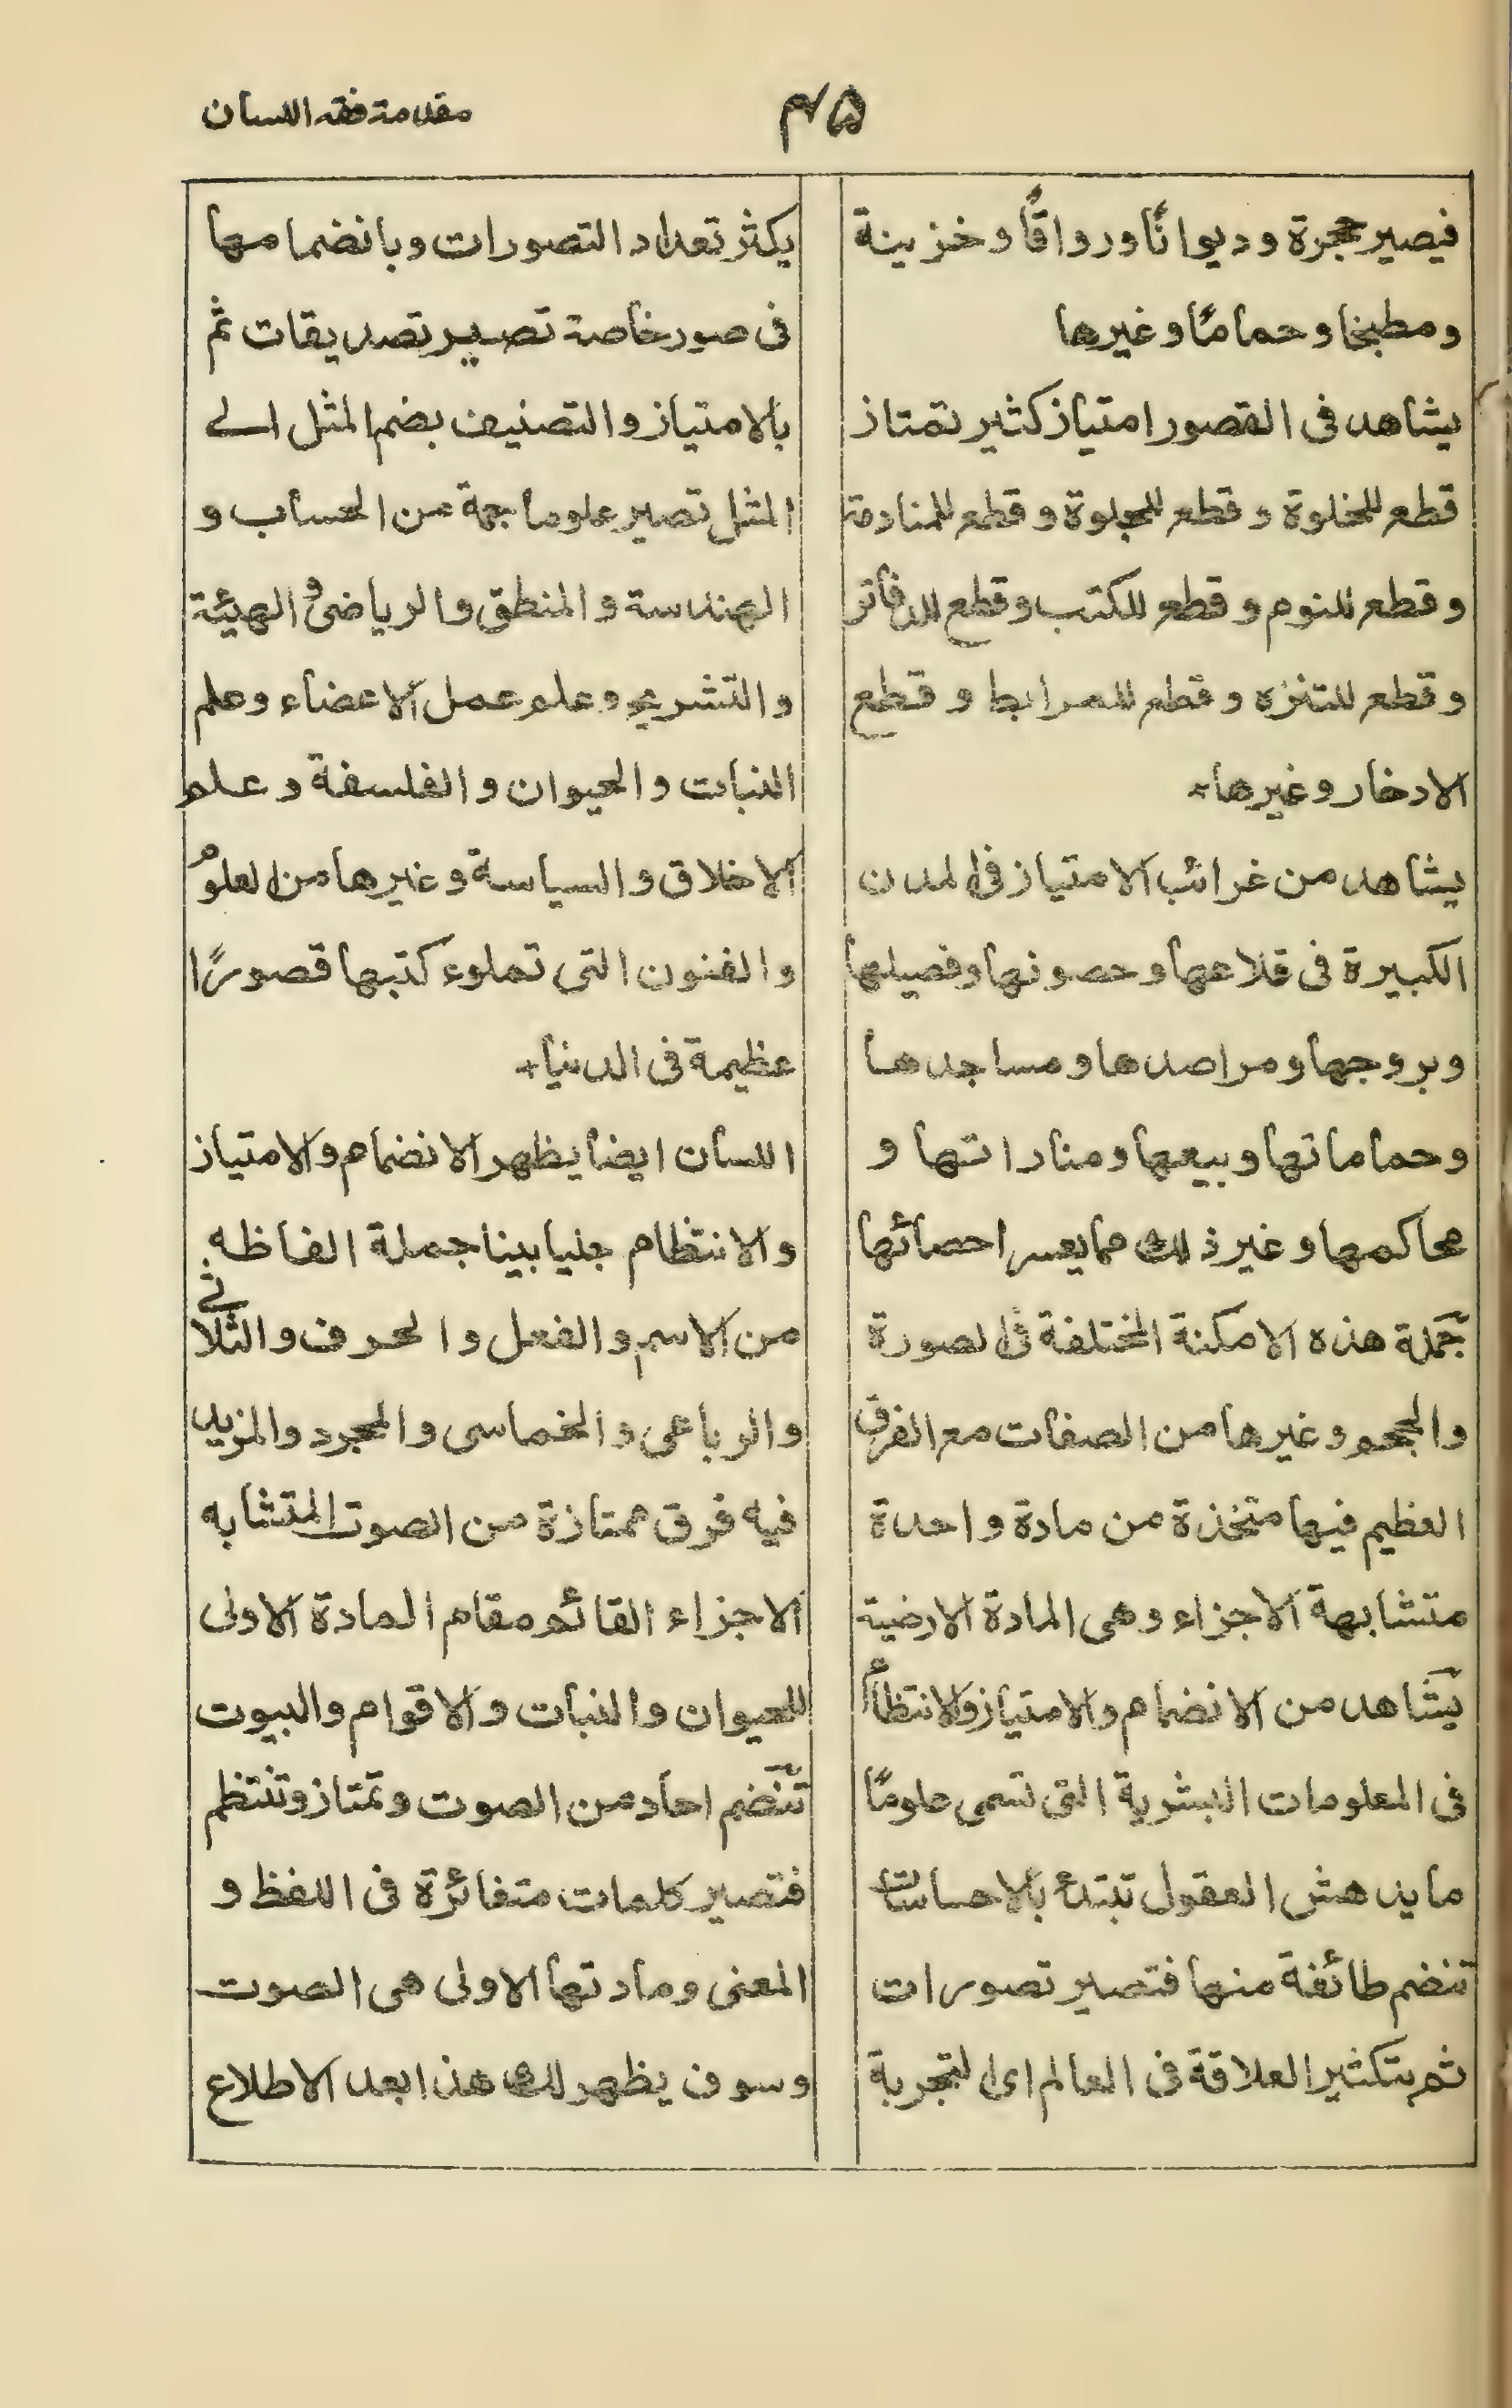 ۴۵
مقدمة فقه اللسان
فيصير حجرة و ديوانًا ورواقًا و خزينة
و مطبخا و حمامًا و غيرها
يشاهد فى القصور امتياز كثير تمتاز
قطع للخلوة و قطع للجلوة و قطع للمنادمة
و قطع للنوم و قطع للكتب و قطع للدفاتر
و قطع للتنزه و قطع للمرابط و قطع
الادخار و غيرها
يشاهد من غرائب الامتياز فى المدن
الكبيرة فى قلاعها و حصونها و فصيلها
و بروجها و مراصدها و مساجدها
و حماماتها و بيعها و مناراتها و
محاكمها و غير ذلك مما يعسر احصائها
جملة هذه الامكنة المختلفة فى الصورة
والحجم و غيرها من الصفات مع الفرق
العظيم فيها متخذة من مادة واحدة
متشابهة الاجزاء و هى المادة الارضية
يشاهد من الانضمام والامتياز والانتظام
فى المعلومات البشرية التى تسمى علومًا
ما يدهش العقول تبتدء بالاحساسات
تنضم طائفة منها فتصير تصورات
ثم بتكثير العلاقة فى العالم اى التجربة
يكثر تعداد التصورات و بانضمامها
فى صور خاصة تصير تصديقات ثم
بالامتياز و التصنيف بضم المثل الى
المثل تصير علوما جمة من الحساب و
الهندسة و المنطق و الرياضى و الهيئة
و التشريح و علم عمل الاعضاء و علم
النبات و الحيوان و الفلسفة و علم
الاخلاق و السياسة و غيرها من العلوم
و الفنون التى تملوء كتبها قصورًا
عظيمة فى الدنيا
اللسان ايضا يظهر الانضمام والامتياز
و الانتظام جليا بينا جملة الفاظه
من الاسم و الفعل و الحرف و الثلاثى
و الرباعى و الخماسى و المجرد والمزيد
فيه فرق ممتازة من الصوت المتشابه
الاجزاء القائم مقام المادة الاولى
للحيوان و النبات و الاقوام و البيوت
تنضم احاد من الصوت و تمتاز و تنتظم
فتصير كلمات متغائرة فى اللفظ و
المعنى و مادتها الاولى هى الصوت
و سوف يظهر لك هذا بعد الاطلاع